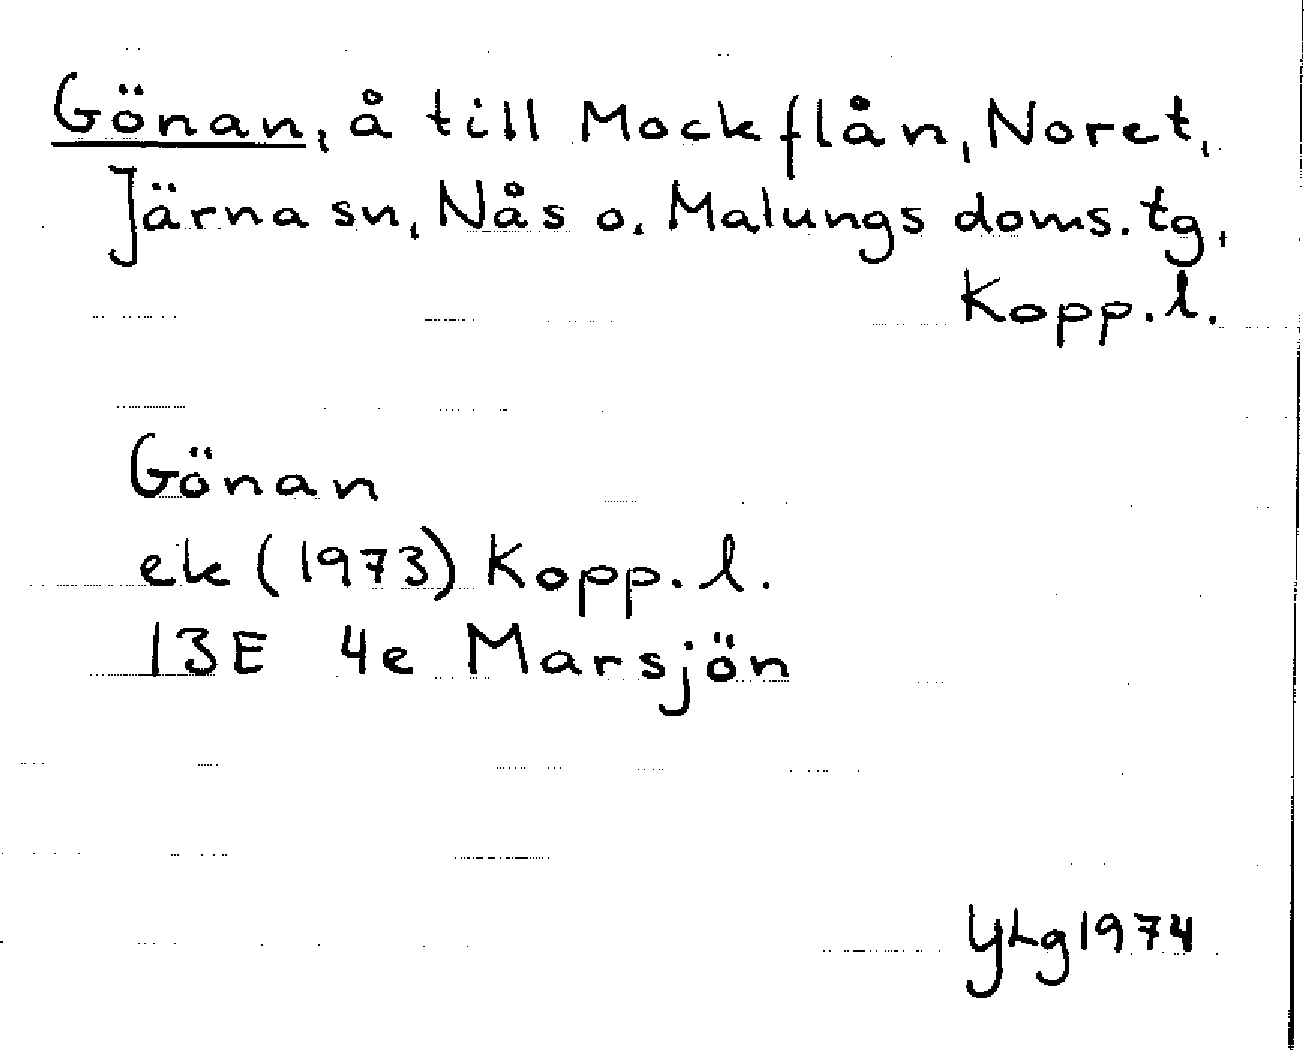 Gönan, å till Mockflån, Noret,
Järna sn, Nås o. Malungs doms. tg,
Kopp. l.
Gönan
ek (1973) Kopp. l.
13E 4e Marsjön
YLg 1974